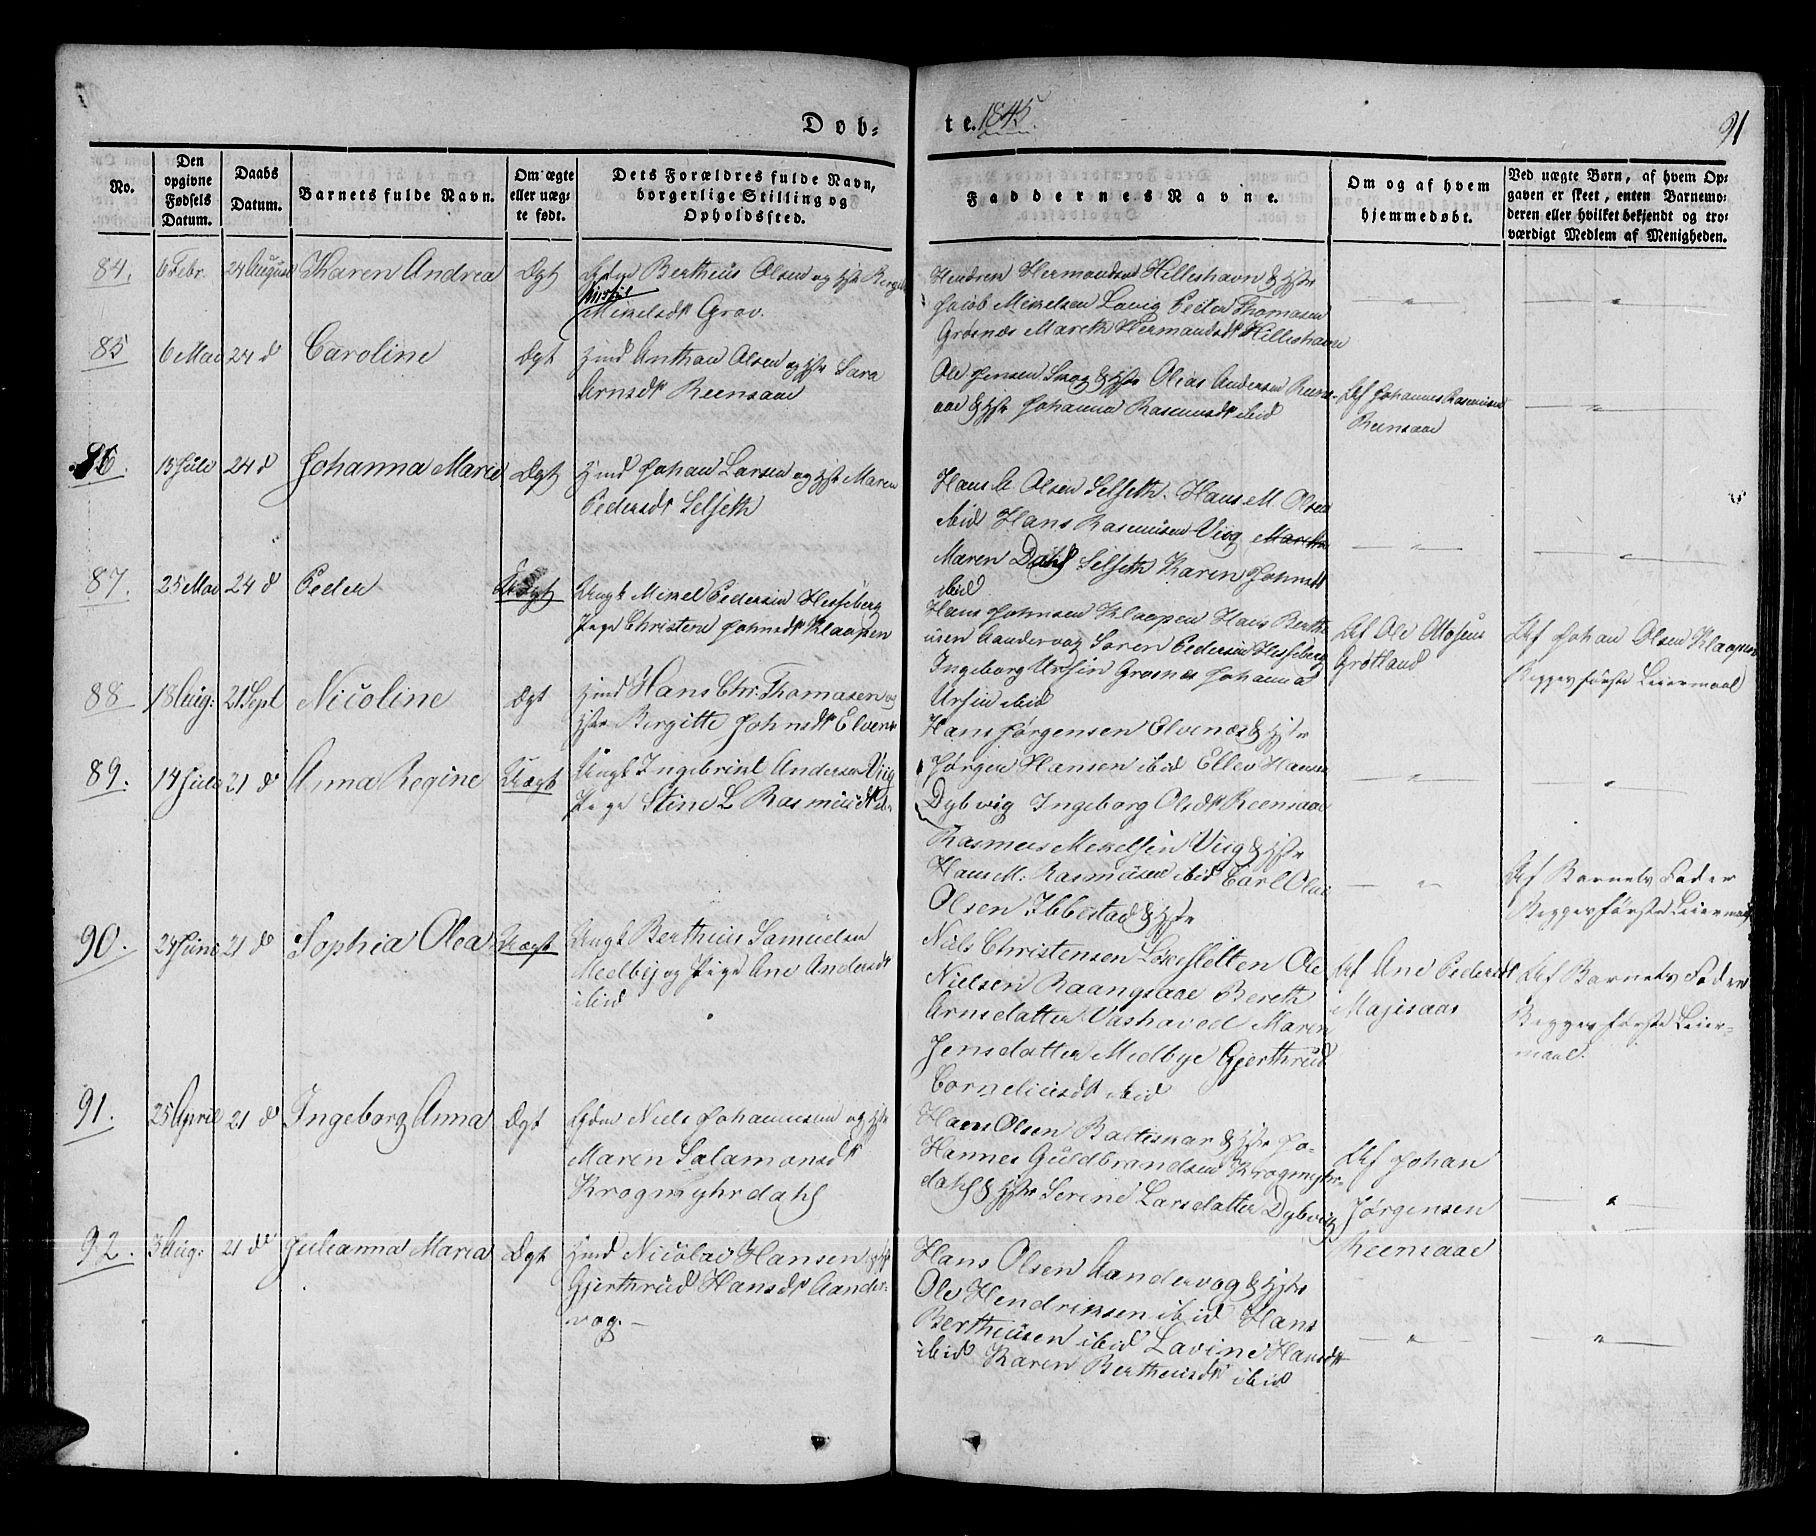 Dob-
te. 1845.
91
No.
Den opgivne Fødsels Datum.
Daabs Datum.
Barnets fulde Navn.
Om ægte eller uægte født.
Dets Forældres fulde Navn, borgerlige Stilling og Opholdssted.
Faddernes Navne.
Om og af hvem hjemmedøbt.
Ved uægte Børn, af hvem Opgaven er skeet, enten Barnemoderen eller hvilket bekjendt og troværdigt Medlem af Menigheden.
84. 6 Febr. 24 August Karen Andrea Ægt
Bertheus Olsen og
Mikelsdt Grov.
Hendrik Hermansen Hilleshavn &
Jacob Mikelsen Lavig Peder Thomasen
Grosnæs Mareth Hermansdt Hilleshavn
85 6 Mai 24 d Caroline Ægt
Anthon Olsen og Hstr Sara
Arnsdt Reensaae
Ole Jensen & Hstr Olias Andersen Reens-
aae & Hstr Johanna Rasmusdt ibid
Af Johannes Rasmusen
Reensaae
86. 13 Juli 24 d Johanna Maria Ægt
Johan Larsen og Hst Maren
Pedersdt Selseth
Hans C Olsen Selseth. Hans M. Olsen
ibid Hans Rasmusen Viig
Maren Dahl Selseth Karen Johnsdt
ibid
87. 25 Mai 24 d Peder Uægt
Ungk Mikel Pedersen Hesseberg
Pige Christine Johnsdt Klaapen
Hans Johnsen Klaapen Hans Berth-
eusen Aandervog Søren Pedersen Hesseberg
Ingeborg Ursin Grosnes Johanna
Ursin ibid
Af Ole Ottosen
Grøtland
Af Johan Olsen Klaapen
Begges første Leiermaal
88 18 Aug: 21 Sept Nicoline Ægt
Hans Chr. Thomasen og
Hstr Birgitte Johnsdt Elvenes
Hans Jørgensen Elvenæs & Hstr
Jørgen Hansen ibid Ellev Hansen
Dybvig Ingeborg Olsdt Reensaae
89. 14 Juli 21 d Anna Regine Uægt
Ungk Ingebrikt Andersen Viig
Pige Stine L Rasmusdt
Rasmus Mikelsen Viig & Hstr
Hans M. Rasmusen ibid Carl Olai
Olsen Ibbestad & Hstr
Af Barnets Fader
Begges første Leiermaal
90. 24 Juni 21 d Sophia Olea Uægt
Ungk Bertheus Samuelsen
Medbÿ og Pige Ane Andersdt
ibid
Niels Christensen Løksletten Ole
Nielsen Raangsaae Bereth
Arnsdatter Vashaved Maren
Jensdatter Medbye Gjerthrud
Corneliusdt ibid
Af Ane Pedersdt
Majisaas
Af Barnets Fader
Begges første Leier-
maal.
91. 25 April 21 d Ingeborg Anna Ægt
Niels Johannesen og Hstr
Maren Salamonsdt
Krogmyhrdahl
Hans Olsen Baltesvar & Hstr Jo-
hannes Guldbrandsen Krogmyhr-
dahl & Hstr Serine Larsdatter Dybvig
Af Johan
Jørgensen
Reensaae
92. 3 Aug: 21 d Julianna Maria Ægt
Nicolai Hansen og Hstr
Gjerthrud Hansdt Aander-
vog.
Hans Olsen Aandervog & Hstr
Ole Hendriksen ibid Hans
Bertheusen ibid Lavine Hansdt
ibid Karen Bertheusdt ibid